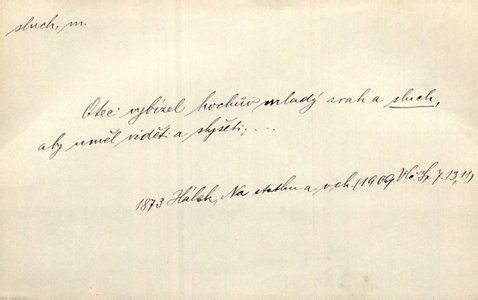 sluch, m.
Otec vybízel hochův mladý zrak a sluch,
aby uměl viděti a slyšeti; ...
1873 Hálek, Na statku a v ch. (1909